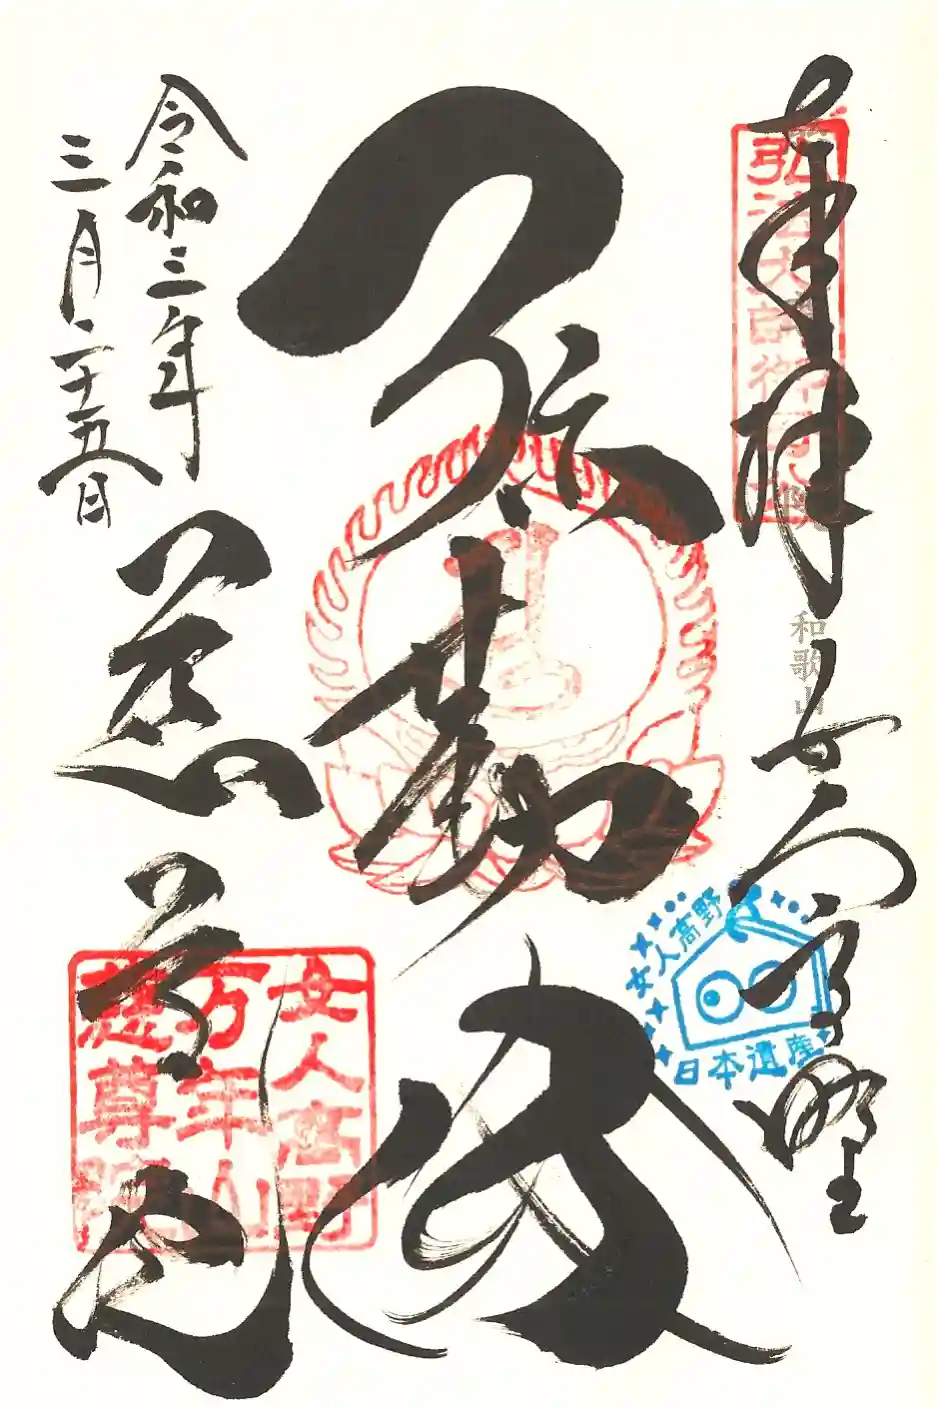 奉拝
女人高野
弘法大師御
和歌山
弥勒
女人高野
日本遺産
令和三年
三月二十五日
慈尊院
女人高野
万年山
慈尊院